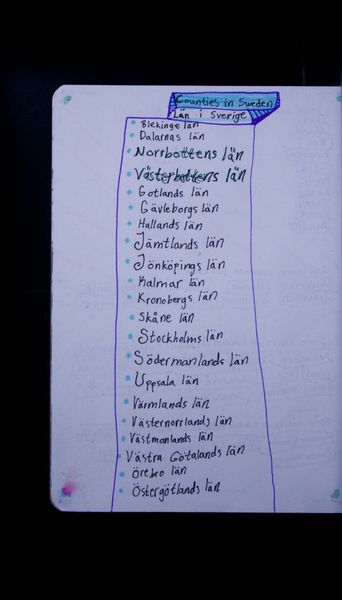 Counties in Sweden
Län i Sverige
Blekinge län
Dalarnas län
Norrbottens län
Västerbottens län
Gotlands län
Gävleborgs län
Hallands län
Jämtlands län
Jönköpings län
Kalmar län
Kronobergs län
Skåne län
Stockholms län
Södermanlands län
Uppsala län
Värmlands län
Västernorrlands län
Västmanlands län
Västra Götalands län
Örebro län
Östergötlands län